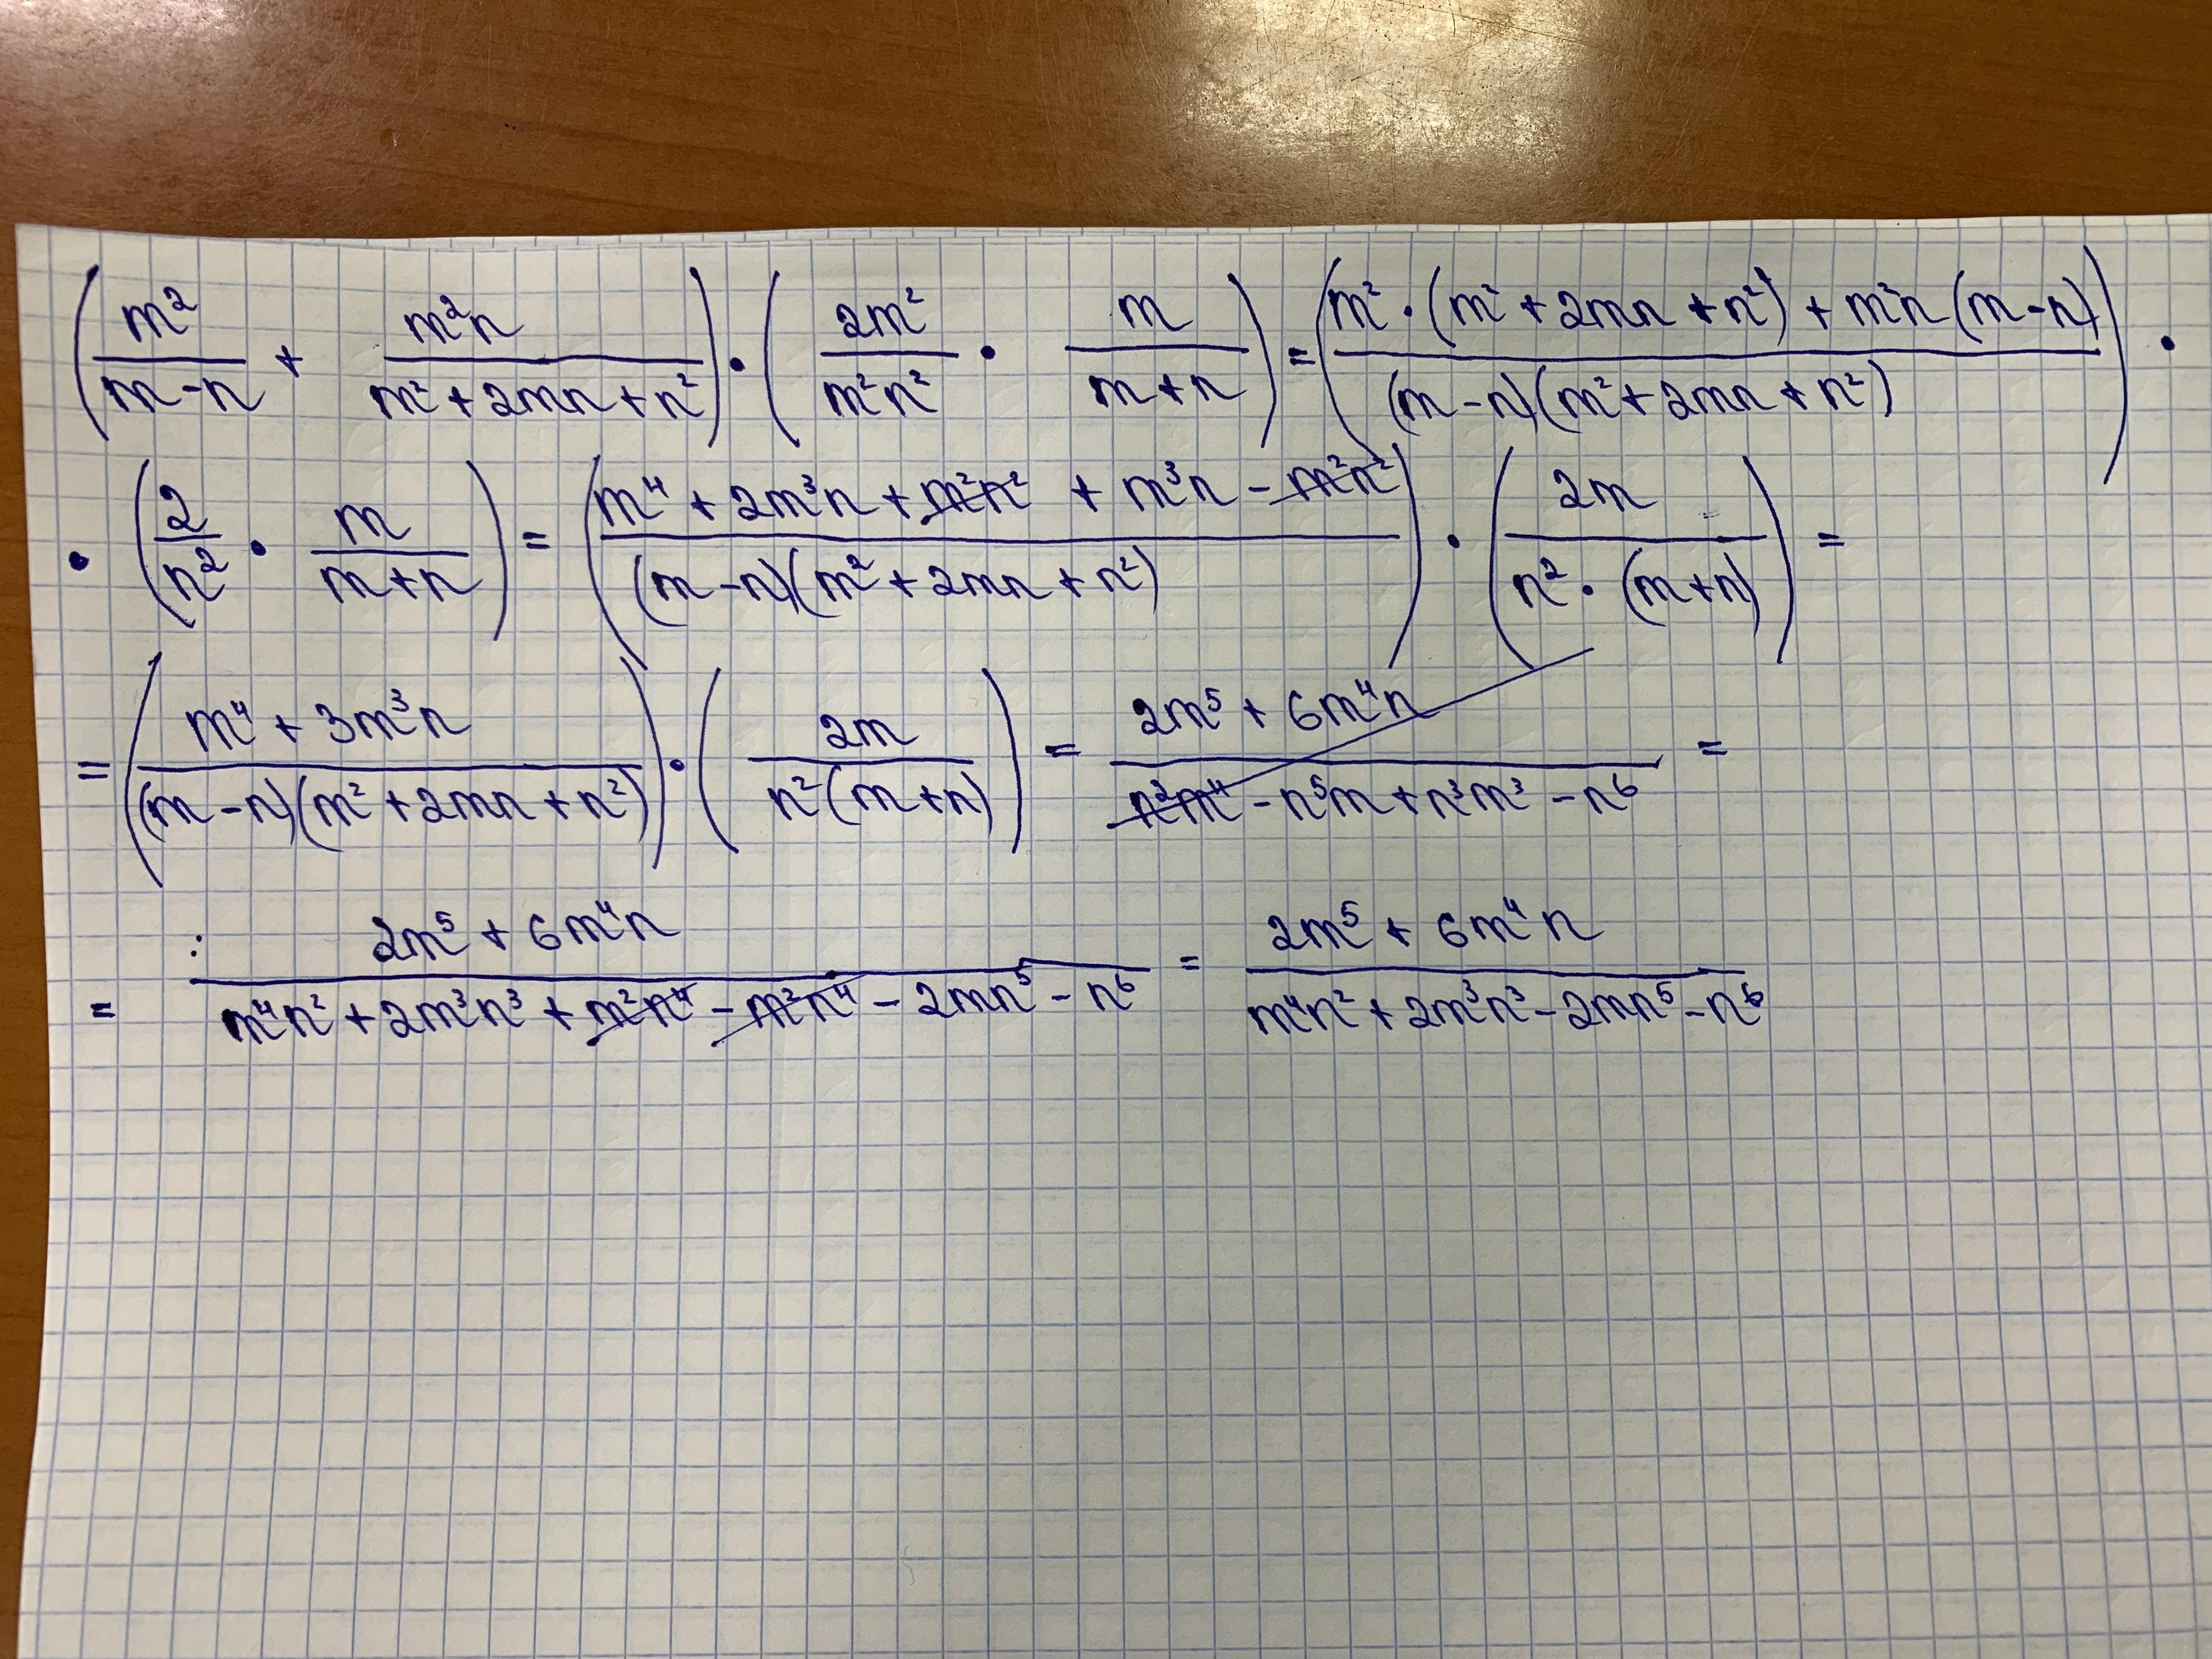 (m²/(m-n) + m²n/(m²+2mn+n²)) · (2m²/(m²n²) · m/(m+n)) = ((m²·(m²+2mn+n²)+m²n(m-n))/((m-n)(m²+2mn+n²))) ·
· (2/n² · m/(m+n)) = ((m⁴+2m³n+m²n²+m³n-m²n²)/((m-n)(m²+2mn+n²))) · (2m/(n²·(m+n))) =
= ((m⁴+3m³n)/((m-n)(m²+2mn+n²))) · (2m/(n²(m+n))) = (2m⁵+6m⁴n)/(n²m⁴-n⁵m+n³m³-n⁶) =
= (2m⁵+6m⁴n)/(m⁴n²+2m³n³+m²n⁴-m²n⁴-2mn⁵-n⁶) = (2m⁵+6m⁴n)/(m⁴n²+2m³n³-2mn⁵-n⁶)